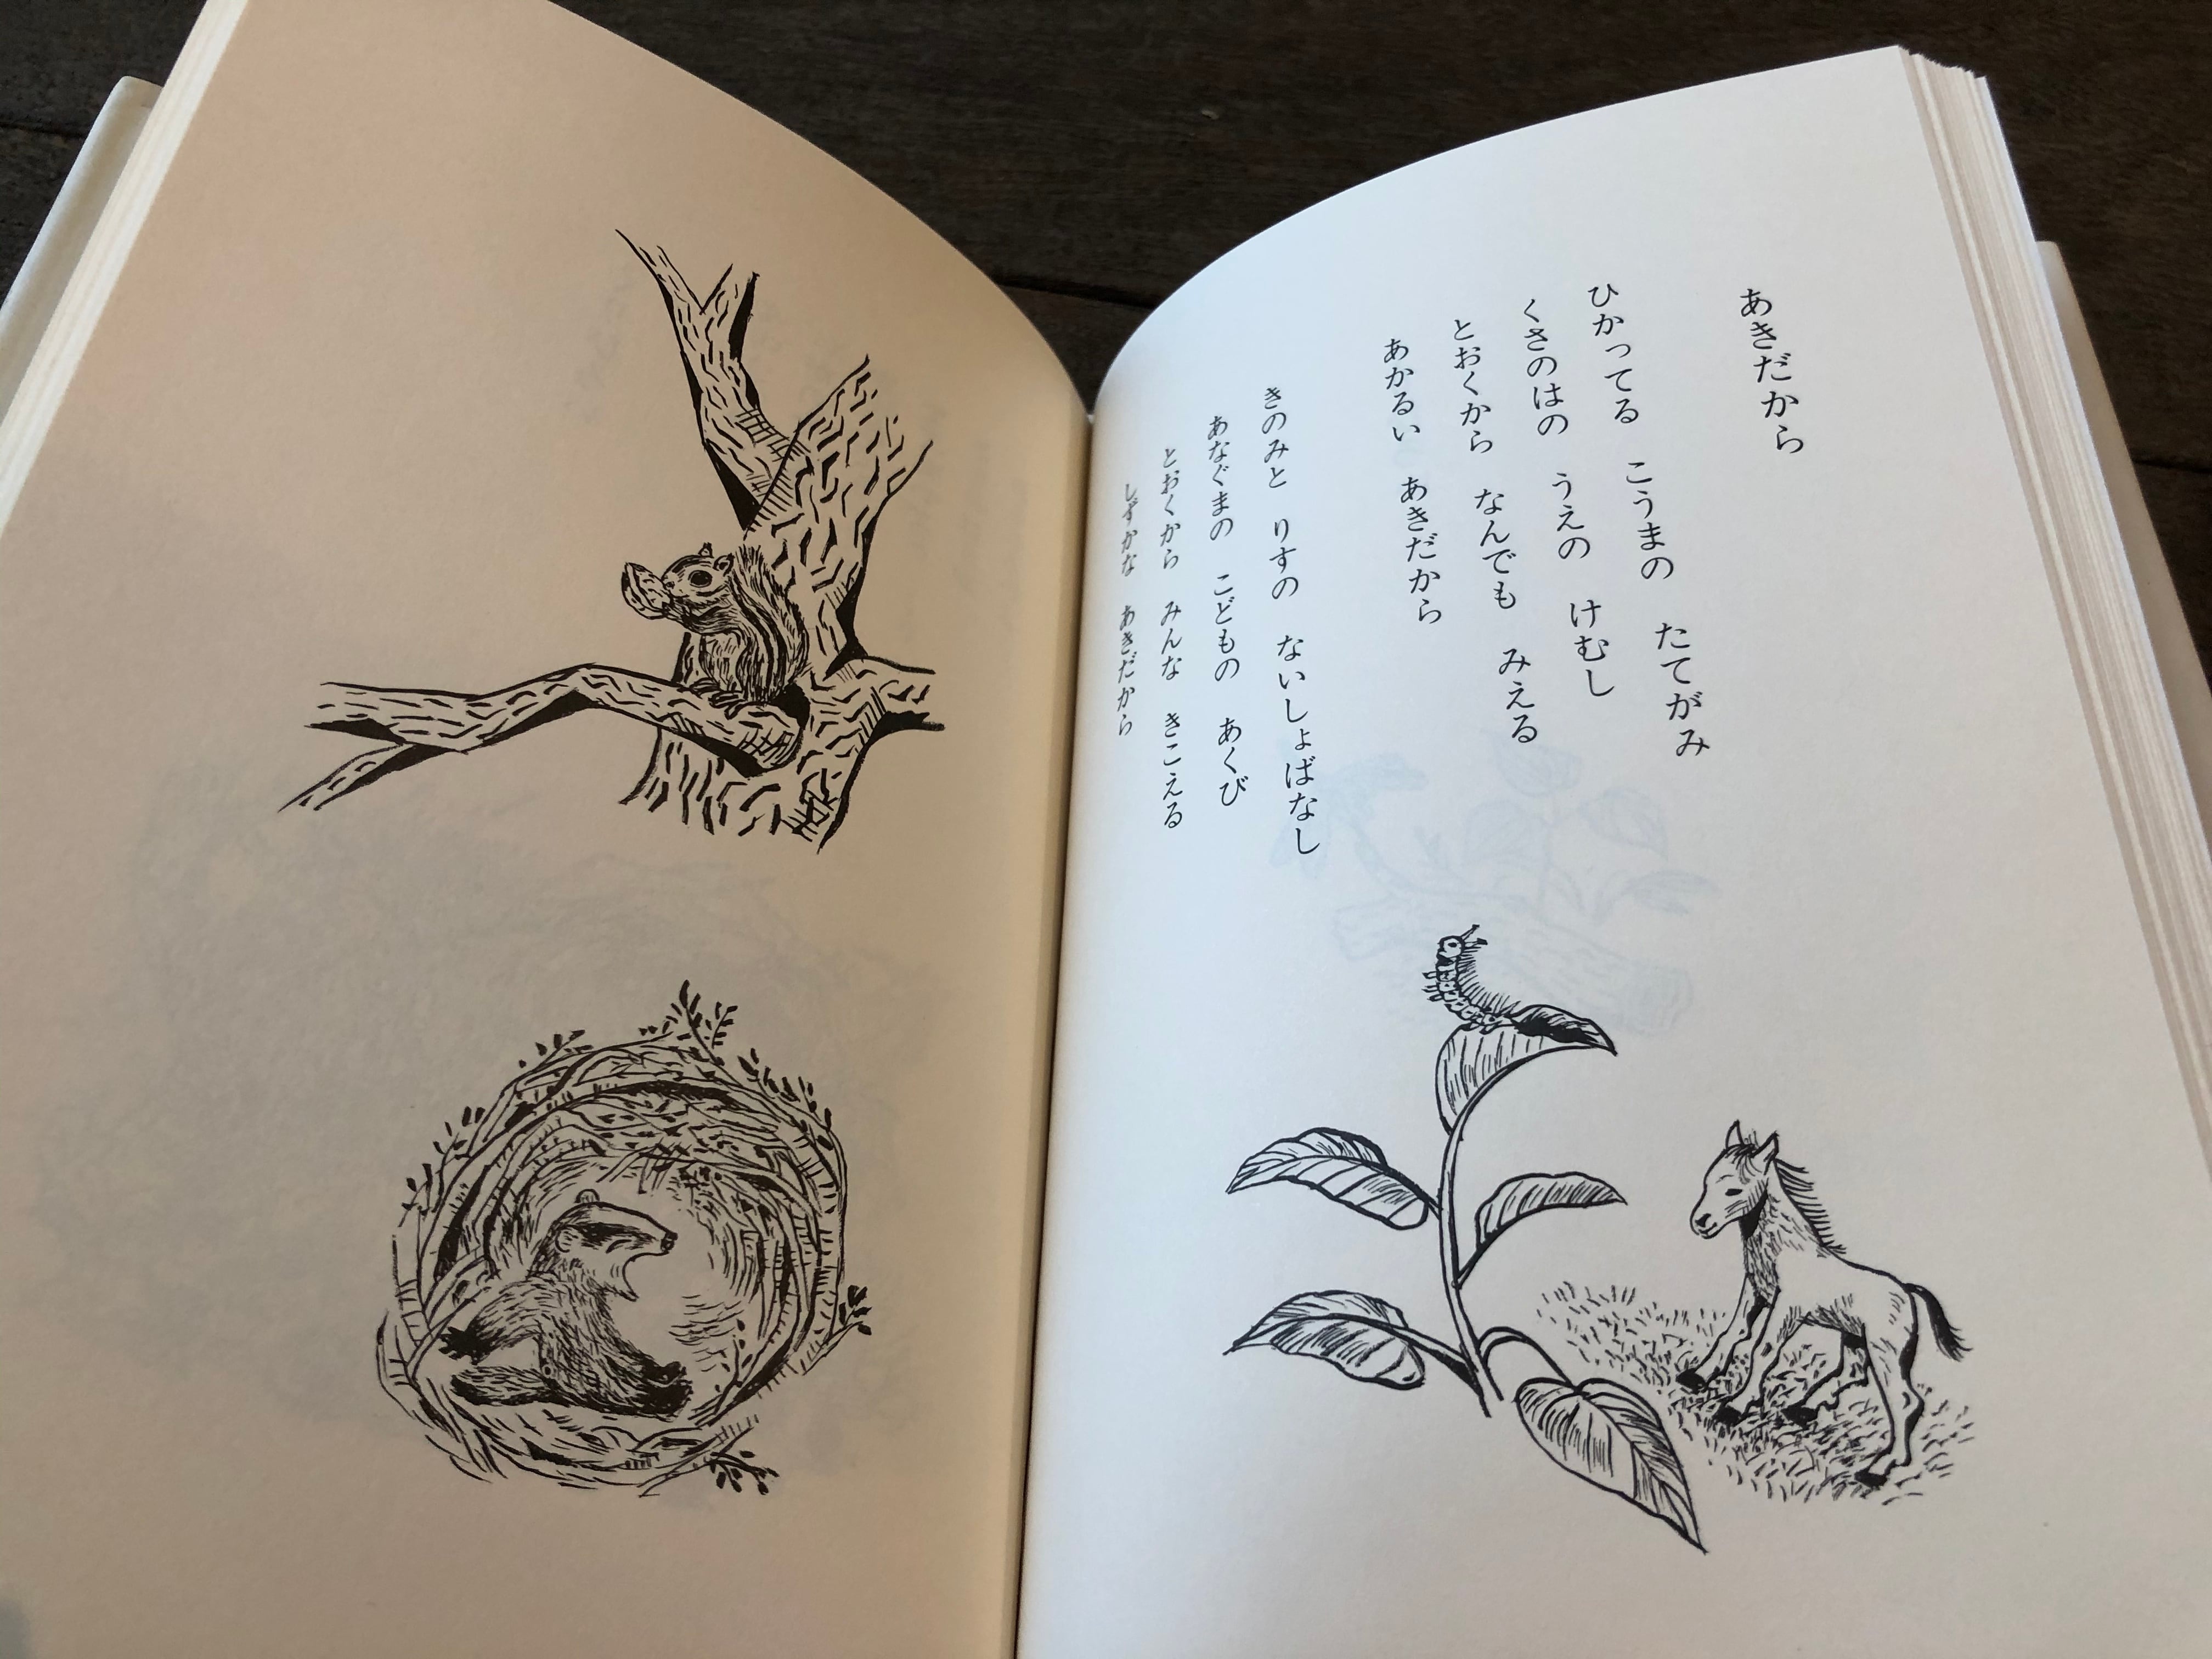 あきだから
ひかってる　こうまの　たてがみ
くさのはの　うえの　けむし
とおくから　なんでも　みえる
あかるい　あきだから
きのみと　りすの　ないしょばなし
あなぐまの　こどもの　あくび
とおくから　みんな　きこえる
しずかな　あきだから